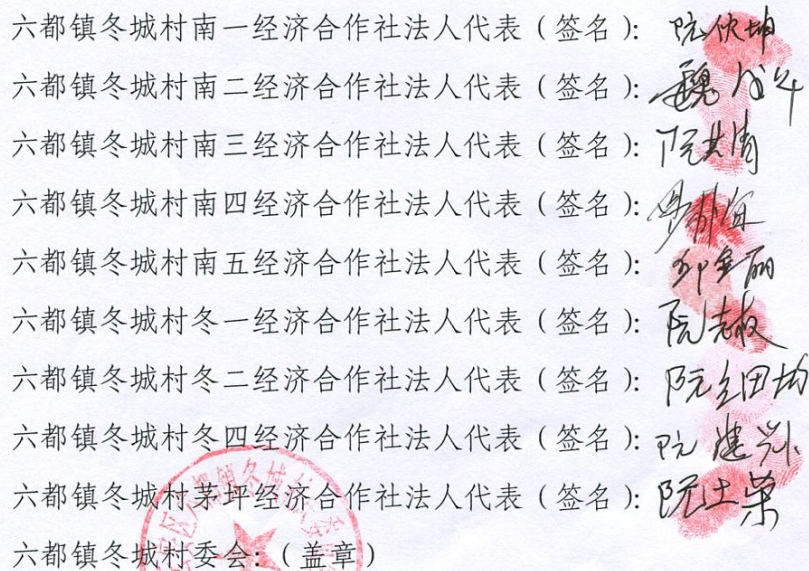 六都镇冬城村南一经济合作社法人代表（签名）: 阮伙坤
六都镇冬城村南二经济合作社法人代表（签名）:
六都镇冬城村南三经济合作社法人代表（签名）: 阮其清
六都镇冬城村南四经济合作社法人代表（签名）:
六都镇冬城村南五经济合作社法人代表（签名）: 邓金丽
六都镇冬城村冬一经济合作社法人代表（签名）: 阮志敏
六都镇冬城村冬二经济合作社法人代表（签名）:
六都镇冬城村冬四经济合作社法人代表（签名）: 阮建兴
六都镇冬城村茅坪经济合作社法人代表（签名）: 阮土荣
六都镇冬城村委会:（盖章）